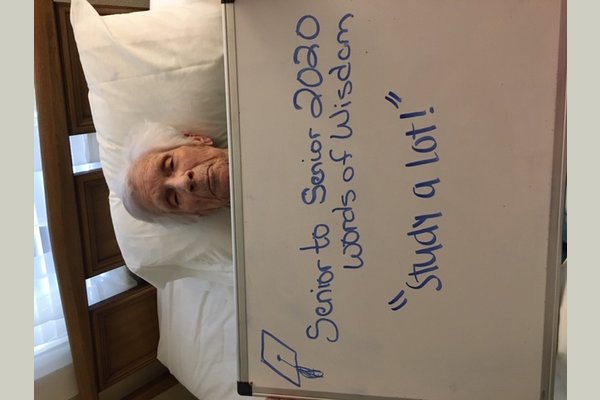 Senior to Senior 2020
Words of Wisdom
"Study a lot!"